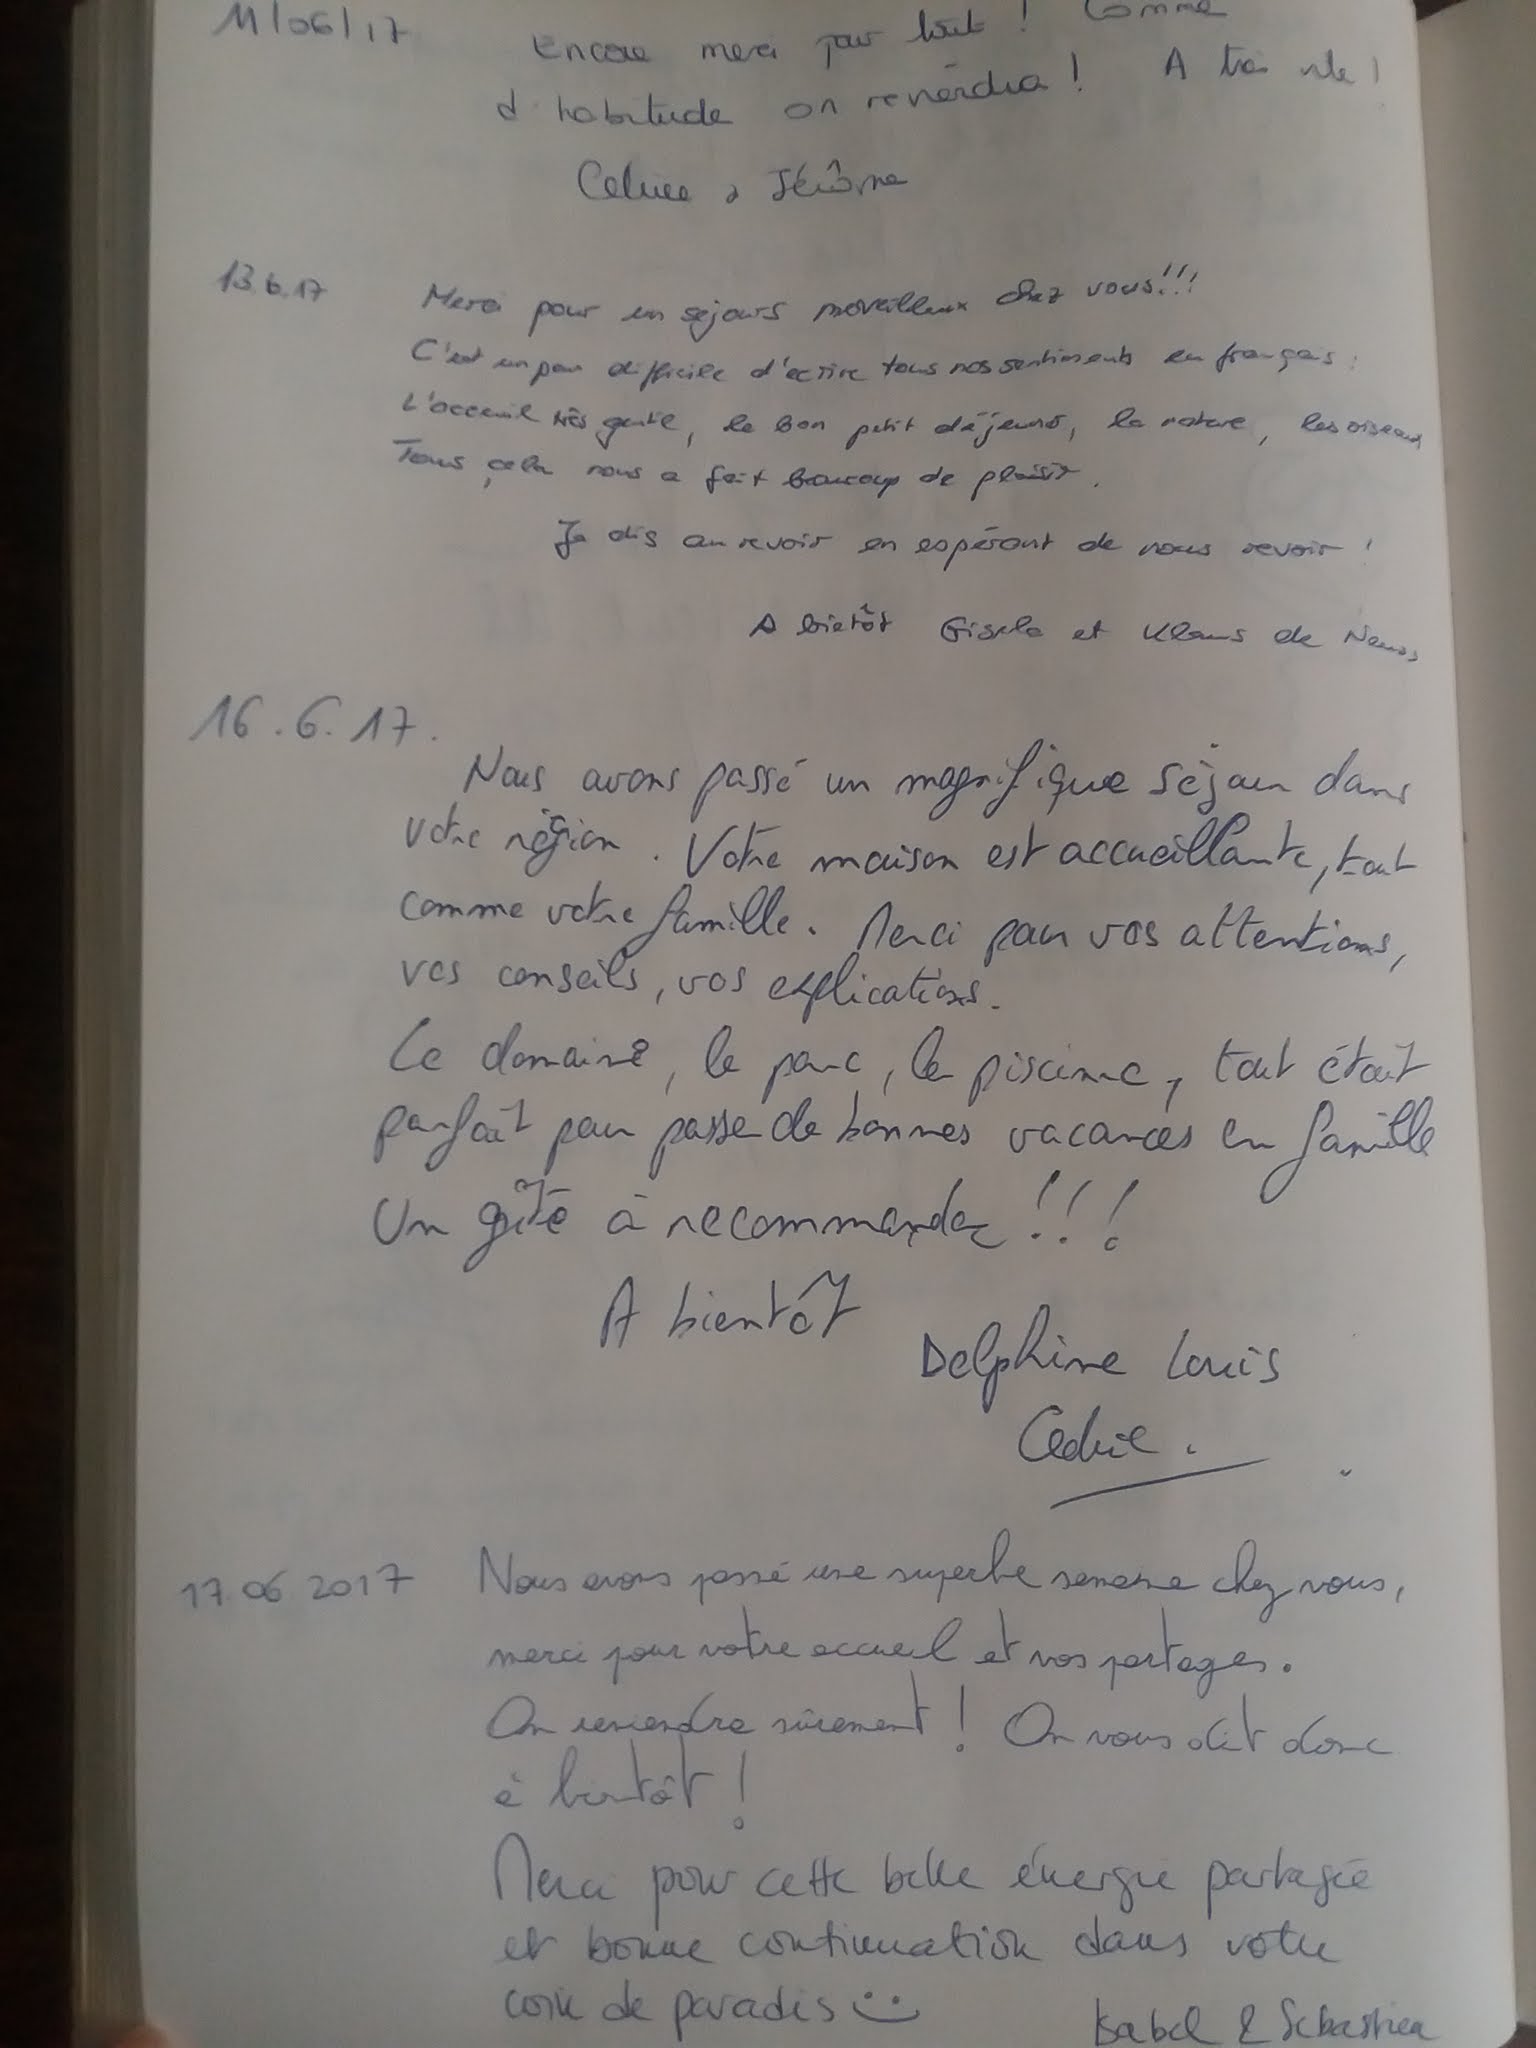 11/06/17
Encore merci pour tout ! Comme
d'habitude on reviendra ! A très vite !
Celine & Jérôme
13.6.17
Merci pour un séjours merveilleux chez vous!!!
C'est un peu difficile d'ecrire tous nos sentiments en français:
L'acceuil très gentil, le bon petit déjeuner, la nature, les oiseaux
Tous cela nous a fait beaucoup de plaisir.
Je dis au revoir en espérant de nous revoir !
A bietôt Gisela et Klaus de
16.6.17.
Nous avons passé un magnifique séjour dans
votre région. Votre maison est accueillante, tout
comme votre famille. Merci pour vos attentions,
vos conseils, vos explications.
Le domaine, le parc, la piscine, tout était
parfait pour passer de bonnes vacances en famille
Un gîte à recommander !!!
A bientôt
Delphine Louis
Cédric.
17.06.2017
Nous avons passé une superbe semaine chez vous,
merci pour votre accueil et vos partages.
On reviendra sûrement ! On vous dit donc
à bientôt !
Merci pour cette belle énergie partagée
et bonne continuation dans votre
coin de paradis :)
Isabel & Sébastien